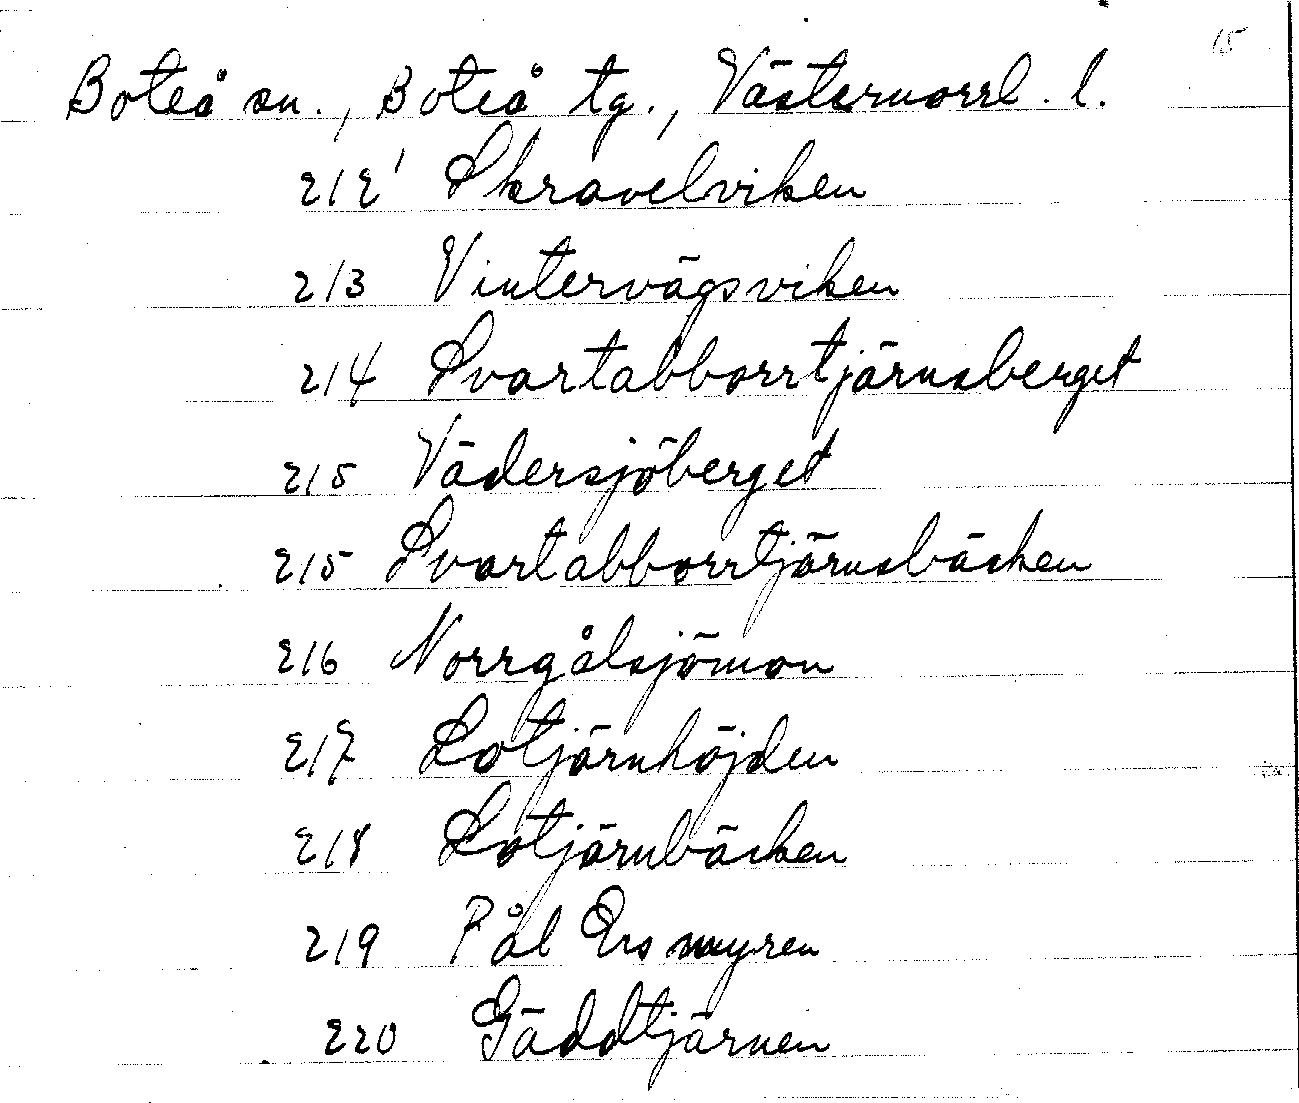 15
Boteå sn., Boteå tg., Västernorrl. l.
212' Skravelviken
213 Vintervägsviken
214 Svartabborrtjärnsberget
215 Vädersjöberget
215 Svartabborrtjärnsbäcken
216 Norrgålsjömon
217 Lotjärnhöjden
218 Lotjärnbäcken
219 Pål Ersmyren
220 Gäddtjärnen